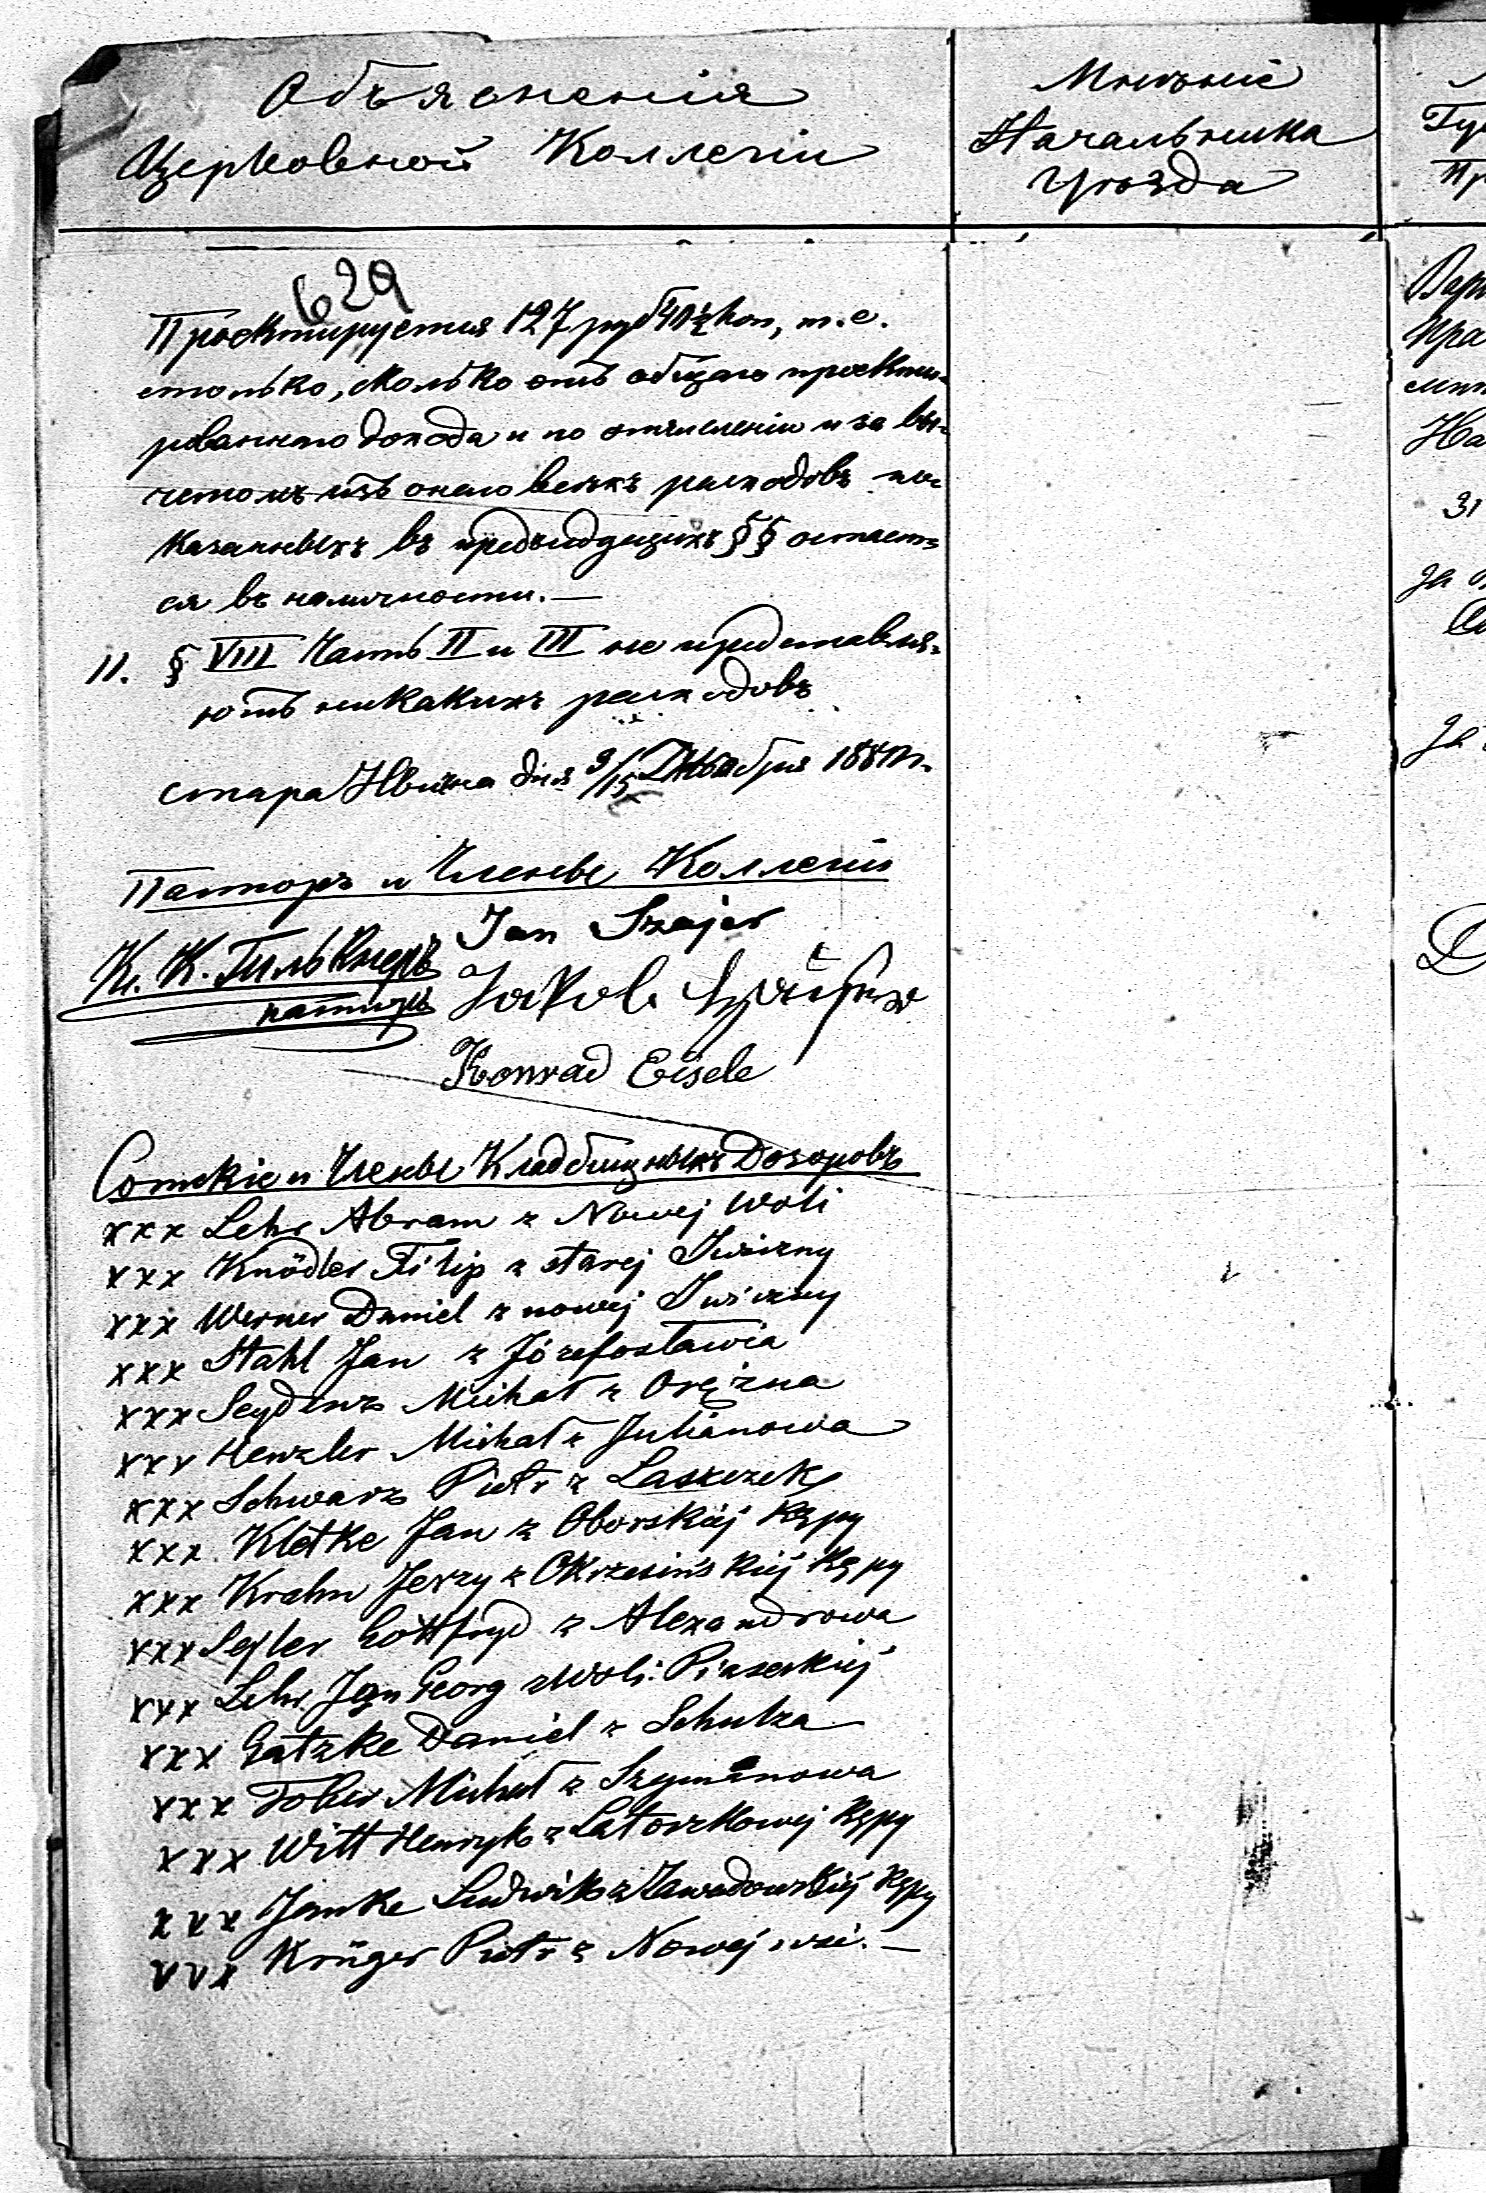 Объясненія
Церковной Коллегіи
Мнѣніе
Начальника
Уѣзда
629
Проектируется 127 руб 40½ коп, т.е.
столько, сколько отъ общаго проекти-
рованнаго дохода и по отчисленіи и за вы-
четомъ изъ онаго всѣхъ расходовъ по-
казанныхъ въ предъидущихъ §§ остает-
ся въ наличности.—
11. § VIII Часть II и III не представля-
ютъ никакихъ расходовъ
Стара Ивична дня 3/15
Пасторъ и Члены Коллегіи
Jan Szajer
пасторъ
Jakob
Konrad Eisele
Сотскіе и Члены Кладбищныхъ Дозоровъ
xxx Lehr Abram z Nowej Woli
xxx Knödler Filip z starej Iwiczny
xxx Werner Daniel z nowej Iwiczny
xxx Stahl Jan z Józefosławia
xxx Michał z Orężna
xxx Henzler Michał z Julianowa
xxx Schwarz Piotr z Łaszczek
xxx Kletke Jan z Oborskiéj Kępy
xxx Krahn Jerzy z Okrzesińskiéj Kępy
xxx Gottfryd z Alexandrowa
xxx Lehr Jan Georg z Woli Piaseckiéj
xxx Gatzke Daniel z Schulza
xxx Tober Michał z Szymanowa
xxx Witt Henryk z Latoszkowéj Kępy
xxx Janke Ludwik z Zawadowskiéj Kępy
xxx Krüger Piotr z Nowéj wsi.—